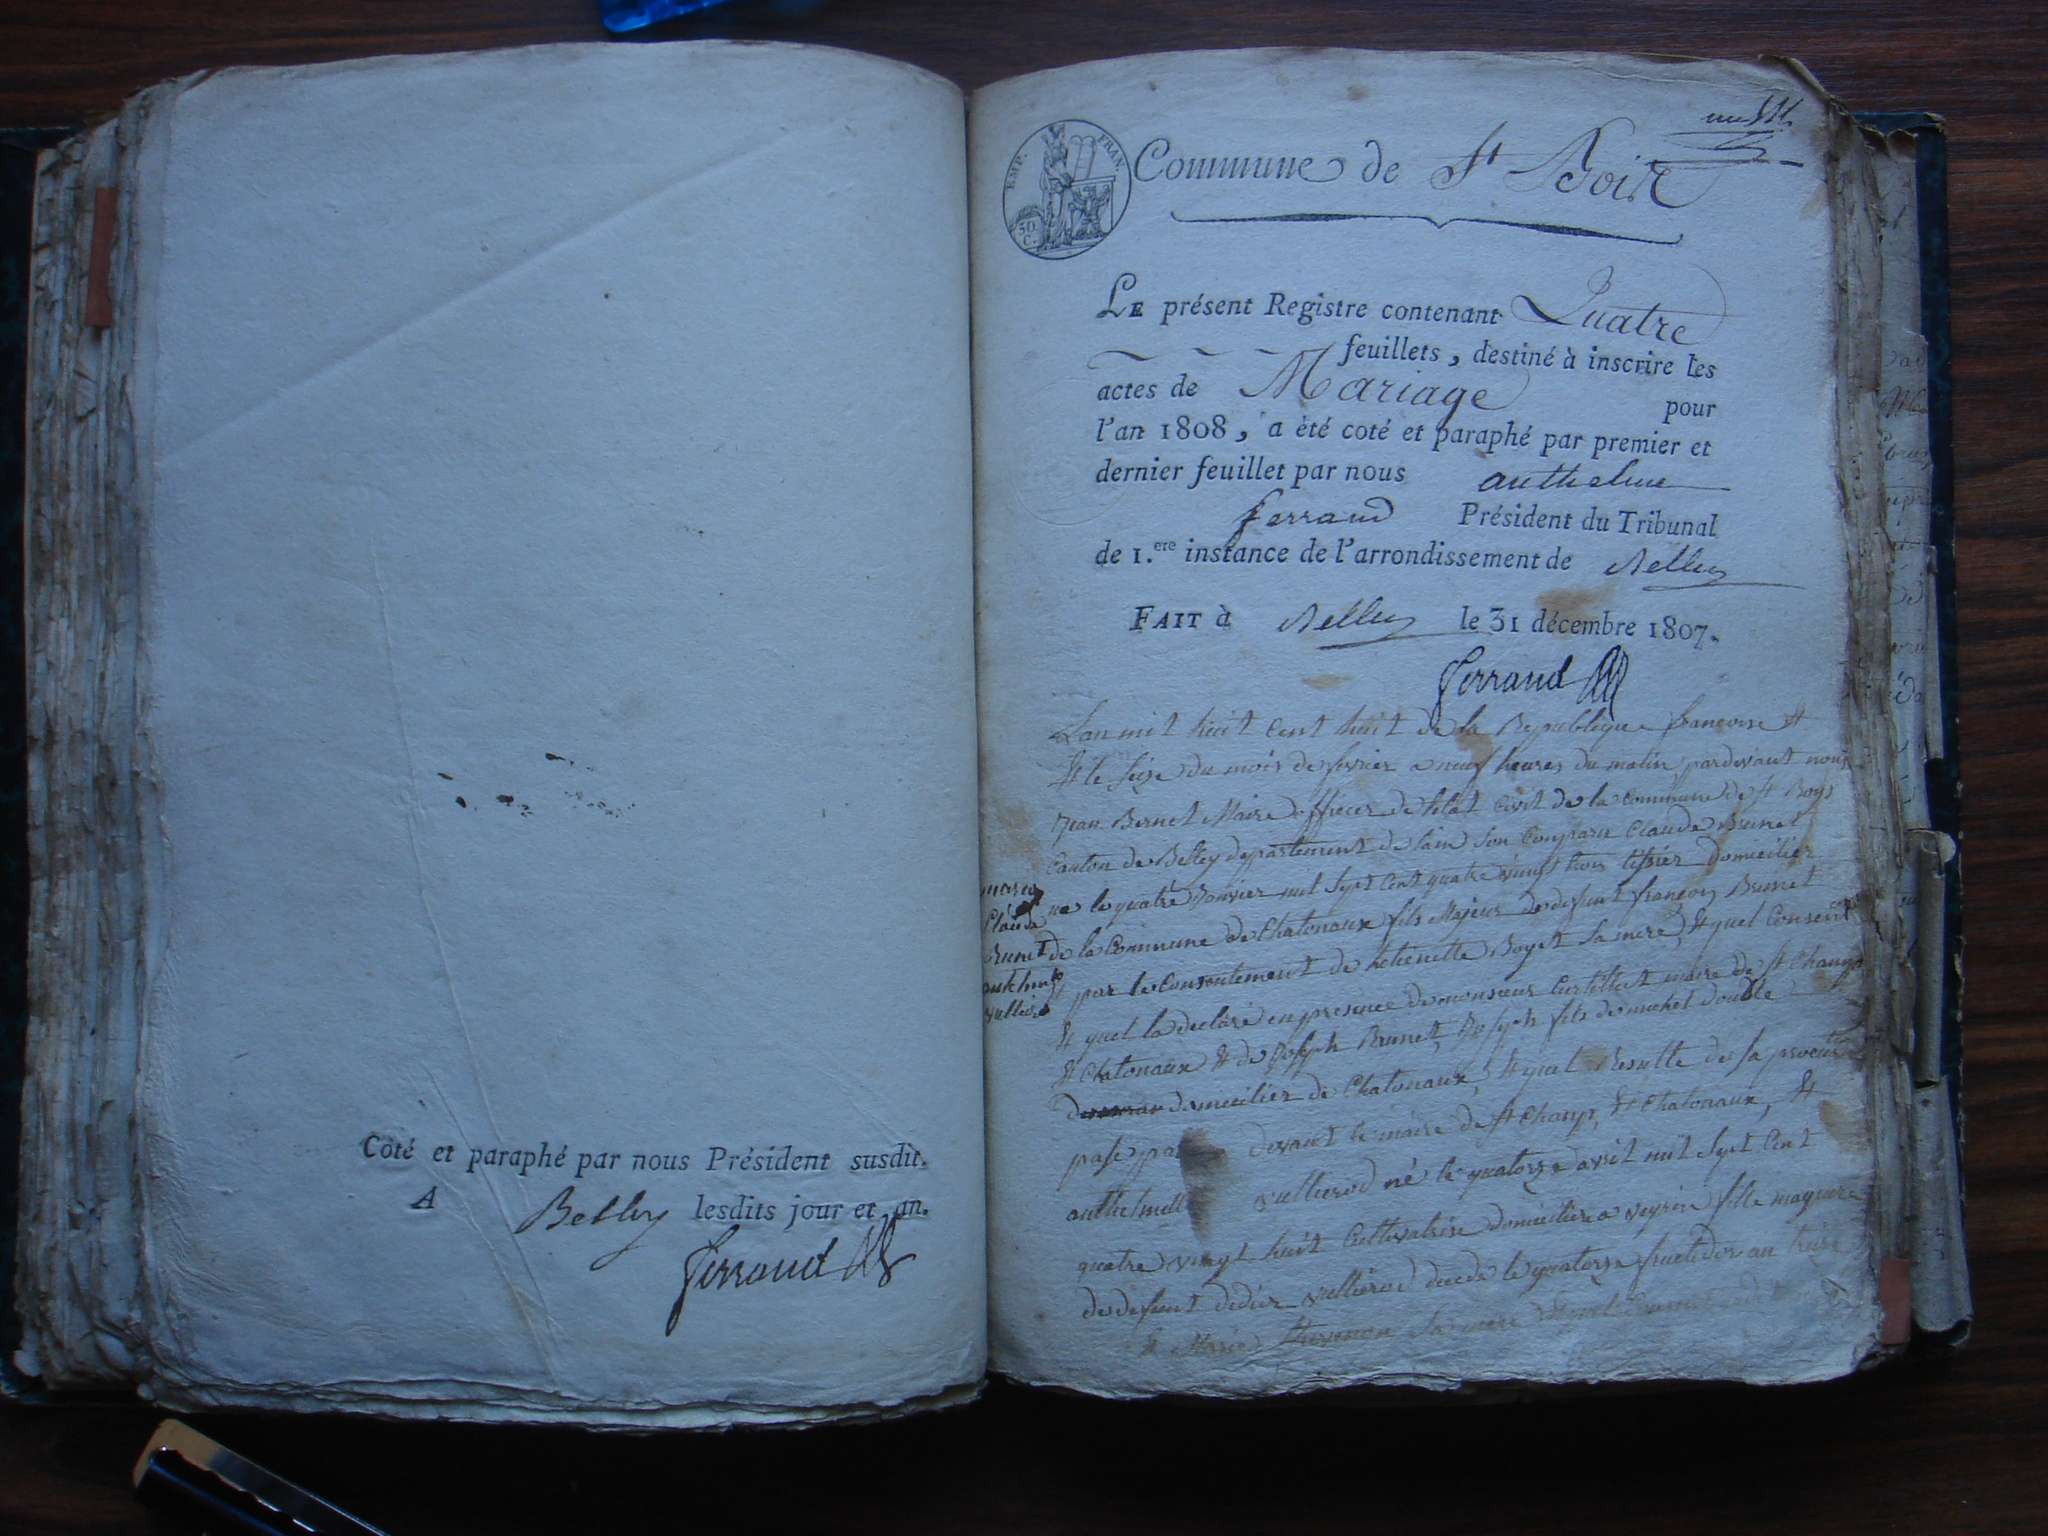 Coté et paraphé par nous Président susdit.
A Belley lesdits jour et an.
Ferrand
EMP. FRAN.
50
C.
Commune de St Boir
LE présent Registre contenant Quatre
feuillets, destiné à inscrire les
actes de Mariage pour
l'an 1808, a été coté et paraphé par premier et
dernier feuillet par nous anthelme
ferrand Président du Tribunal
de 1.ere instance de l'arrondissement de Belley
FAIT à Belley le 31 décembre 1807.
Ferrand
Lan mil huit Cent huit de la Republique francoise et
le seize du mois de fevrier a neuf heures du matin pardevant nous
Jean Bernet Maire officier de letat Civil de la commune de St Boys
Canton de Belley departement de lain son Comparu Claude Brunet
ne le quatre Janvier mil Sept Cent quatre vingt trois domicilier
de la Commune de Chatonaux fils Majeur de defunt françois Brunet
par le Consentement de Boget Sa mere
la declare en presence de monsieur Curtillet maire de St Champ
et Chatonaux et de Joseph Brunet, Joseph fils de michel double
domicilier de Chatonaux, Resulte de sa
devant le maire de St Champ, et Chatonaux, et
vullierod né le quatorze avril mil Sept Cent
quatre vingt huit Cultivatrice domiciliere a veyrin fille
de defunt vullierod decede le quatorze fructidor an
et Marie Sa mere
Claude
Brunet